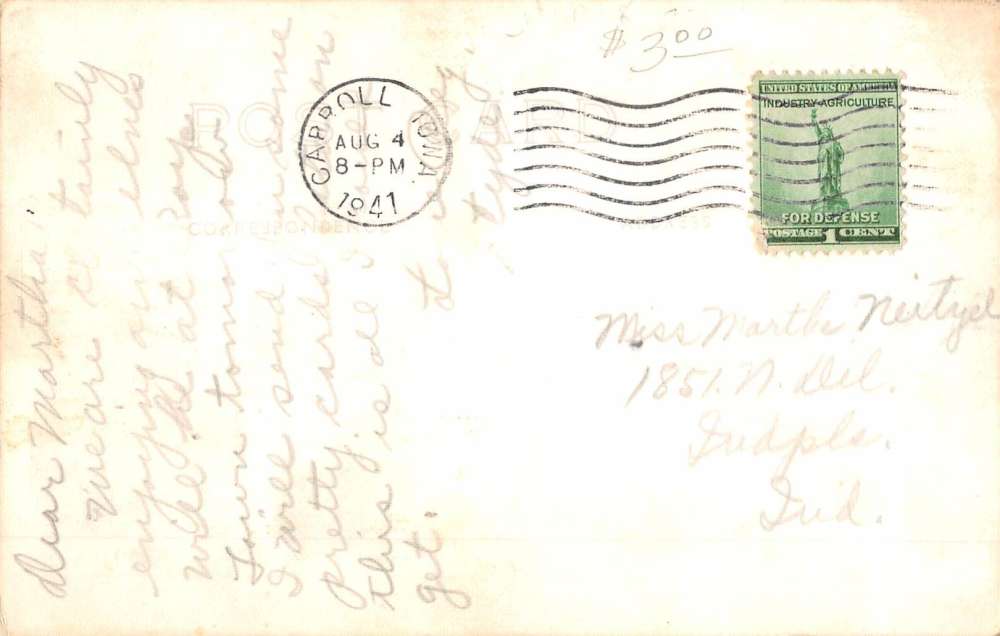 $ 3.00
POST CARD
CORRESPONDENCE
ADDRESS
CARROLL IOWA
AUG 4
8-PM
1941
UNITED STATES OF AMERICA
INDUSTRY-AGRICULTURE
FOR DEFENSE
POSTAGE 1 CENT
Miss Martha Neitzel
1851. N. Del.
Indpls.
Ind.
Dear Martha:
We are certainly
enjoying our
will be at
town tomorrow
I will send you some
pretty cards
this is all I can
get.